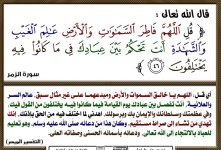 قال الله تعالى :
﴿ قُلِ اللَّهُمَّ فَاطِرَ السَّمَاوَاتِ وَالْأَرْضِ عَالِمَ الْغَيْبِ
وَالشَّهَادَةِ أَنتَ تَحْكُمُ بَيْنَ عِبَادِكَ فِي مَا كَانُوا فِيهِ
يَخْتَلِفُونَ ﴾ ٤٦
سورة الزمر
أي قل: اللهم يا خالق السموات والأرض ومبدعهما على غير مثال سبق، عالم السر
والعلانية، أنت تفصل بين عبادك يوم القيامة فيما كانوا فيه يختلفون من القول فيك،
وفي عظمتك وسلطانك والإيمان بك وبرسولك. اهدني لما اختلف فيه من الحق بإذنك، إنك
تهدي من تشاء إلى صراط مستقيم. وكان هذا من دعائه صلى الله عليه وسلم، وهو تعليم
للعباد بالالتجاء إلى الله تعالى، ودعائه بأسمائه الحسنى وصفاته العلى.
( التفسير الميسر )